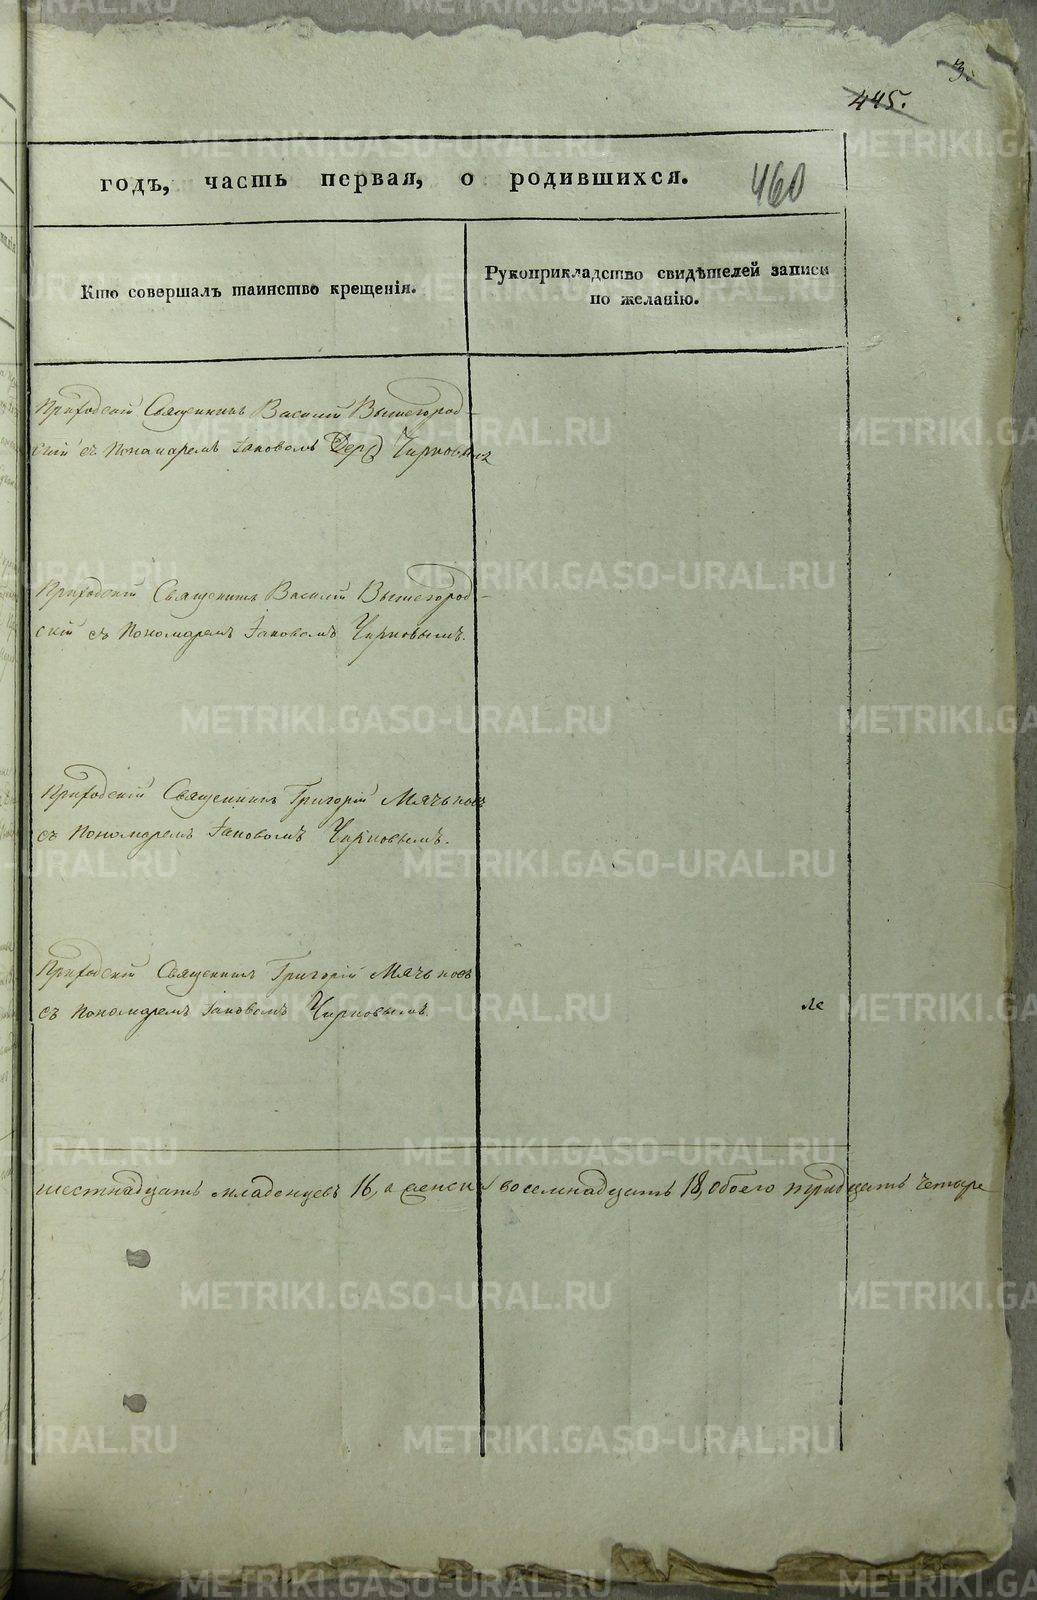 3.
445.
годъ, часть первая, о родившихся.
460
Кто совершалъ таинство крещенія.
Рукоприкладство свидѣтелей записи
по желанію.
Приходскій Священникъ Василій Вышегород-
скій съ Пономаремъ Іаковомъ Чирновымъ
Приходскій Священникъ Василій Вышегород-
скій съ Пономаремъ Іаковомъ Чирновымъ.
Приходскій Священникъ Григорій Мячьковъ
съ Пономаремъ Іаковомъ Чирновымъ.
Приходскій Священникъ Григорій Мячьковъ
съ Пономаремъ Іаковомъ Чирновымъ.
ле
шестнадцать младенцевъ 16, а женска восемнадцать 18, обоего тридцать четыре
METRIKI.GASO-URAL.RU